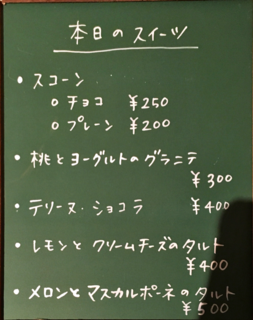 本日のスイーツ
• スコーン
○ チョコ ¥250
○ プレーン ¥200
• 桃とヨーグルトのグラニテ
¥300
• テリーヌ・ショコラ ¥400
• レモンと クリームチーズのタルト
¥400
• メロンと マスカルポーネのタルト
¥500